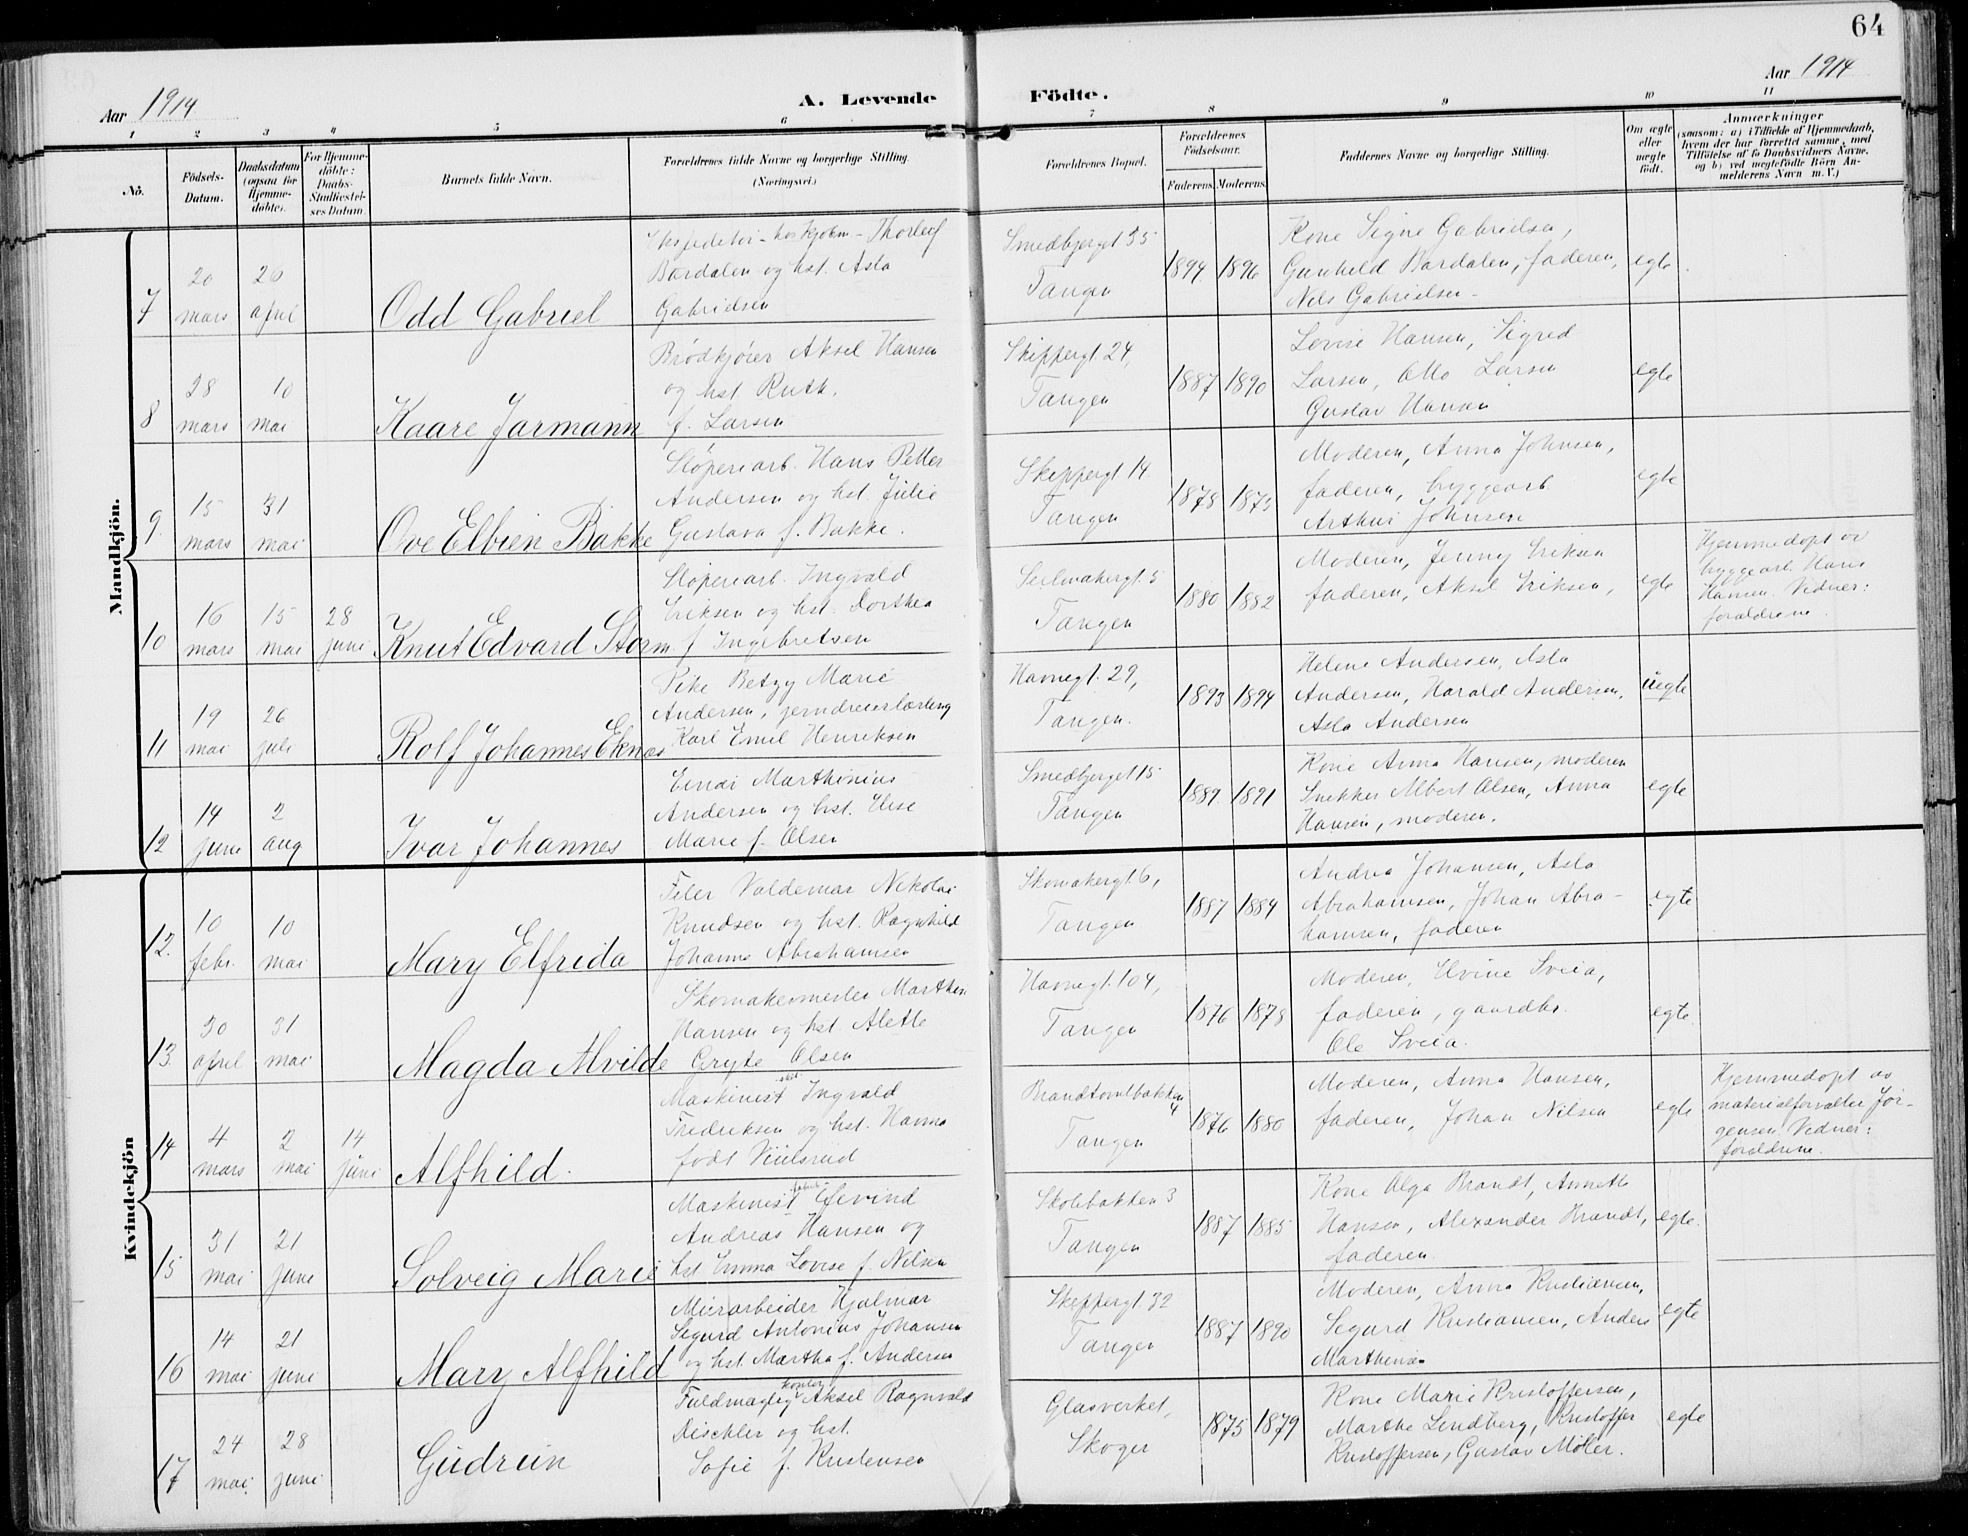 64
Aar 1914
A. Levende
Födte.
Aar 1914
1 2 3 4 5 6 7 8 9 10 11
No.
Födsels-Datum.
Daabsdatum (ogsaa for Hjemmedöbte).
For Hjemmedöbte: Daabs-Stadfæstelses Datum
Barnets fulde Navn.
Forældrenes fulde Navne og borgerlige Stilling.
(Næringsvei.)
Forældrenes Bopæl.
Forældrenes Födselsaar.
Faderens. Moderens.
Faddernes Navne og borgerlige Stilling.
Om ægte eller uægte födt.
Anmærkninger
(saasom: a) i Tilfælde af Hjemmedaab, hvem der har forrettet samme, med Tilföielse af to Daabsvidners Navne, og b) ved uegtefödte Börn Anmelderens Navn m. V.)
Mandkjön.
7
20 mars
26 april
Odd Gabriel
Thorleif
Bardalen og hst. Asta
Gabrielsen
Smedbjerget 35
Tangen
1894 1896
Kone Signe Gabrielsen,
Gunhild Bardalen, faderen,
Nils Gabrielsen
egte
8
28 mars
10 mai
Kaare Jarmann
Brödkjörer Aksel Hansen
og hst Ruth.
f. Larsen
Skippergt. 24,
Tangen
1887 1890
Lovise Hansen, Sigred
Larsen, Otto Larsen
Gustav Hansen
egte
9.
15 mars
31 mai
Ove Elbien Bakke
Stöperiarb. Hans Petter
Andersen og hst. Julie
Gustava f. Bakke.
Skippergt 14.
Tangen
1878 1875
Moderen, Anna Johnsen,
faderen, byggearb
Arthur Johnsen
egte
10
16 mars
15 mai
28 juni
Knut Edvard Storm
Stöperiarb. Ingvald
Eriksen og hst. Dorthea
f. Ingebretsen
Seilmakergt. 5
Tangen
1880 1882
Moderen, Jenny Eriksen
faderen, Aksel Eriksen,
egte
Hjemmedöpt av
byggearb. Hans
Hansen. Vidner:
forældrene.
11
19 mai
26 juli
Rolf Johannes Eknes
Pike Betzy Marie
Andersen, jerndreierlærling
Karl Emil Henriksen
Havnegt. 29,
Tangen.
1893 1894
Helene Andersen, Asta
Andersen, Harald Andersen,
Asta Andersen
uegte
12
14 juni
2 aug
Ivar Johannes
Marthinius
Andersen og hst. Elise
Marie f. Olsen
Smedbjerget 15
Tangen
1889. 1891
Kone Anna Hansen, moderen
Snekker Albert Olsen, Anna
Hansen, moderen.
egte
Kvindekjön
12.
10 febr.
10 mai
Mary Elfrida
Filer Valdemar Nikolai
Knudsen og hst. Ragnhild
Johanne Abrahamsen
Skomakergt. 6,
Tangen
1887 1889
Andrea Johansen, Asta
Abrahamsen, Johan Abra-
hamsen, faderen
egte
13.
30 april
31 mai
Magda Alvilde
Skomakermester Marthin
Hansen og hst. Alette
Gryte Olsen
Havnegt. 104,
Tangen
1876 1878
Moderen, Elvine Sveia,
faderen, gaardbr.
Ole Sveia.
egte.
14
4 mars
2 mai
14 juni
Alfhild.
Maskinist Ingvald
Fredriksen og hst. Hanna
född
Brandtomtbakken
4
Tangen
1876 1880
Moderen, Anna Hansen,
faderen, Johan Nilsen
egte
Hjemmedöpt av
materialforvalter Jör-
gensen. Vidner:
forældrene.
15
31 mai
21 juni
Solveig Marie
Maskinist Eivind
Andreas Hansen og
hst. Emma Lovise f. Nilsen
Skolebakken 3
Tangen
1887 1885
Kone Olga Brandt, Annette
Hansen, Alexander Brandt,
faderen.
egte.
16
14 mai
21 juni
Mary Alfhild
Murarbeider Hjalmar
Sigurd Antonius Johansen
og hst. Martha f. Andersen
Skippergt. 32
Tangen
1887 1890
Moderen, Anna Kristiansen,
Sigurd Kristiansen, Anders
Marthinsen
egte
17
24 mai.
28 juni
Gudrun
kontor
Fuldmægtig Aksel Ragnvald
Dischler og hst.
Sofie f. Kristensen
Glasverket,
Skoger
1875 1879
Kone Marie Kristoffersen,
Marthe Lindberg, Kristoffer
Kristoffersen, Gustav Möller.
egte